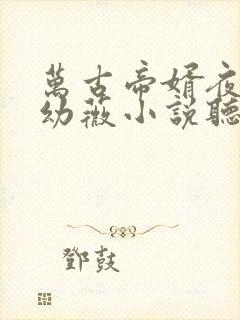 萬古帝婿夜
幼薇小説聽
鄧鼓